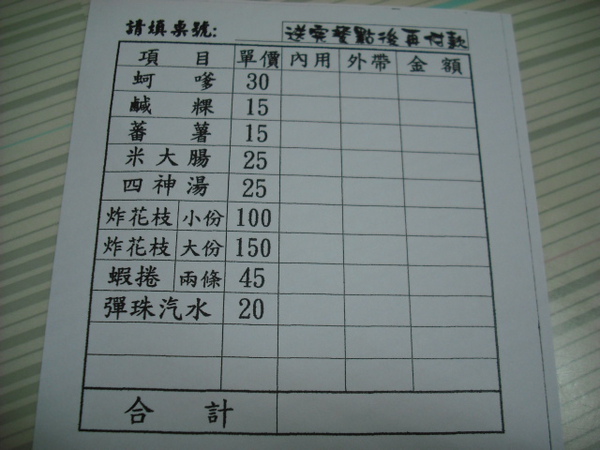 請填桌號: 送完餐點後再付款
項目 單價 內用 外帶 金額
蚵嗲 30
鹹粿 15
蕃薯 15
米大腸 25
四神湯 25
炸花枝 小份 100
炸花枝 大份 150
蝦捲 兩條 45
彈珠汽水 20
合計